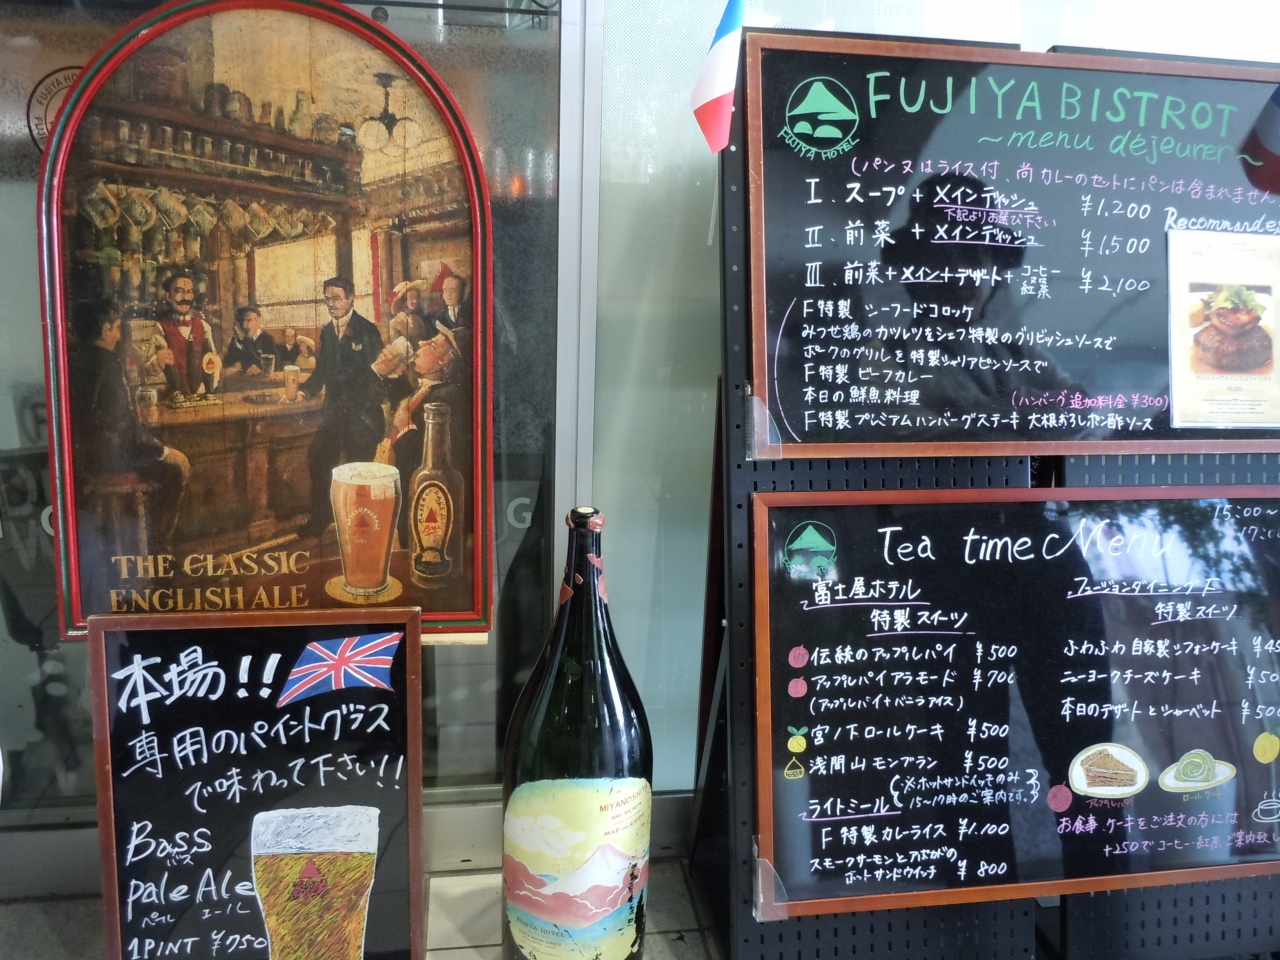 THE CLASSIC
ENGLISH ALE
本場!!
専用のパイントグラス
で味わって下さい!!
Bass
バス
pale Ale
ペール エール
1PINT ¥750
MIYANOSHITA
FUJIYA HOTEL
FUJIYA HOTEL
FUJIYA BISTROT
~menu déjeuner~
(パン又はライス付、尚カレーのセットにパンは含まれません
I. スープ + メインディッシュ ¥1.200
下記よりお選び下さい
II. 前菜 + メインディッシュ ¥1,500
III. 前菜+メイン+デザート+コーヒー 紅茶 ¥2,100
F特製 シーフードコロッケ
みつせ鶏のカツレツをシェフ特製のグリビッシュソースで
ポークのグリルを特製シャリアピンソースで
F特製 ビーフカレー
本日の鮮魚料理
(ハンバーグ追加料金¥300)
F特製 プレミアムハンバーグステーキ 大根おろしポン酢ソース
Tea time Menu
15:00~
富士屋ホテル
特製スイーツ
伝統のアップルパイ ¥500
アップルパイアラモード ¥700
(アップルパイ+バニラアイス)
宮ノ下ロールケーキ ¥500
浅間山モンブラン ¥500
ライトミール (※ホットサンドイッチのみ
15~17時のご案内です。)
F特製カレーライス ¥1.100
スモークサーモンとアボガドの
ホットサンドウイッチ ¥800
フュージョンダイニングF
特製スイーツ
ふわふわ自家製シフォンケーキ
ニューヨークチーズケーキ
本日のデザートとシャーベット
アップルパイ
ロールケーキ
お食事、ケーキをご注文の方には
+250でコーヒー・紅茶、ご案内致し